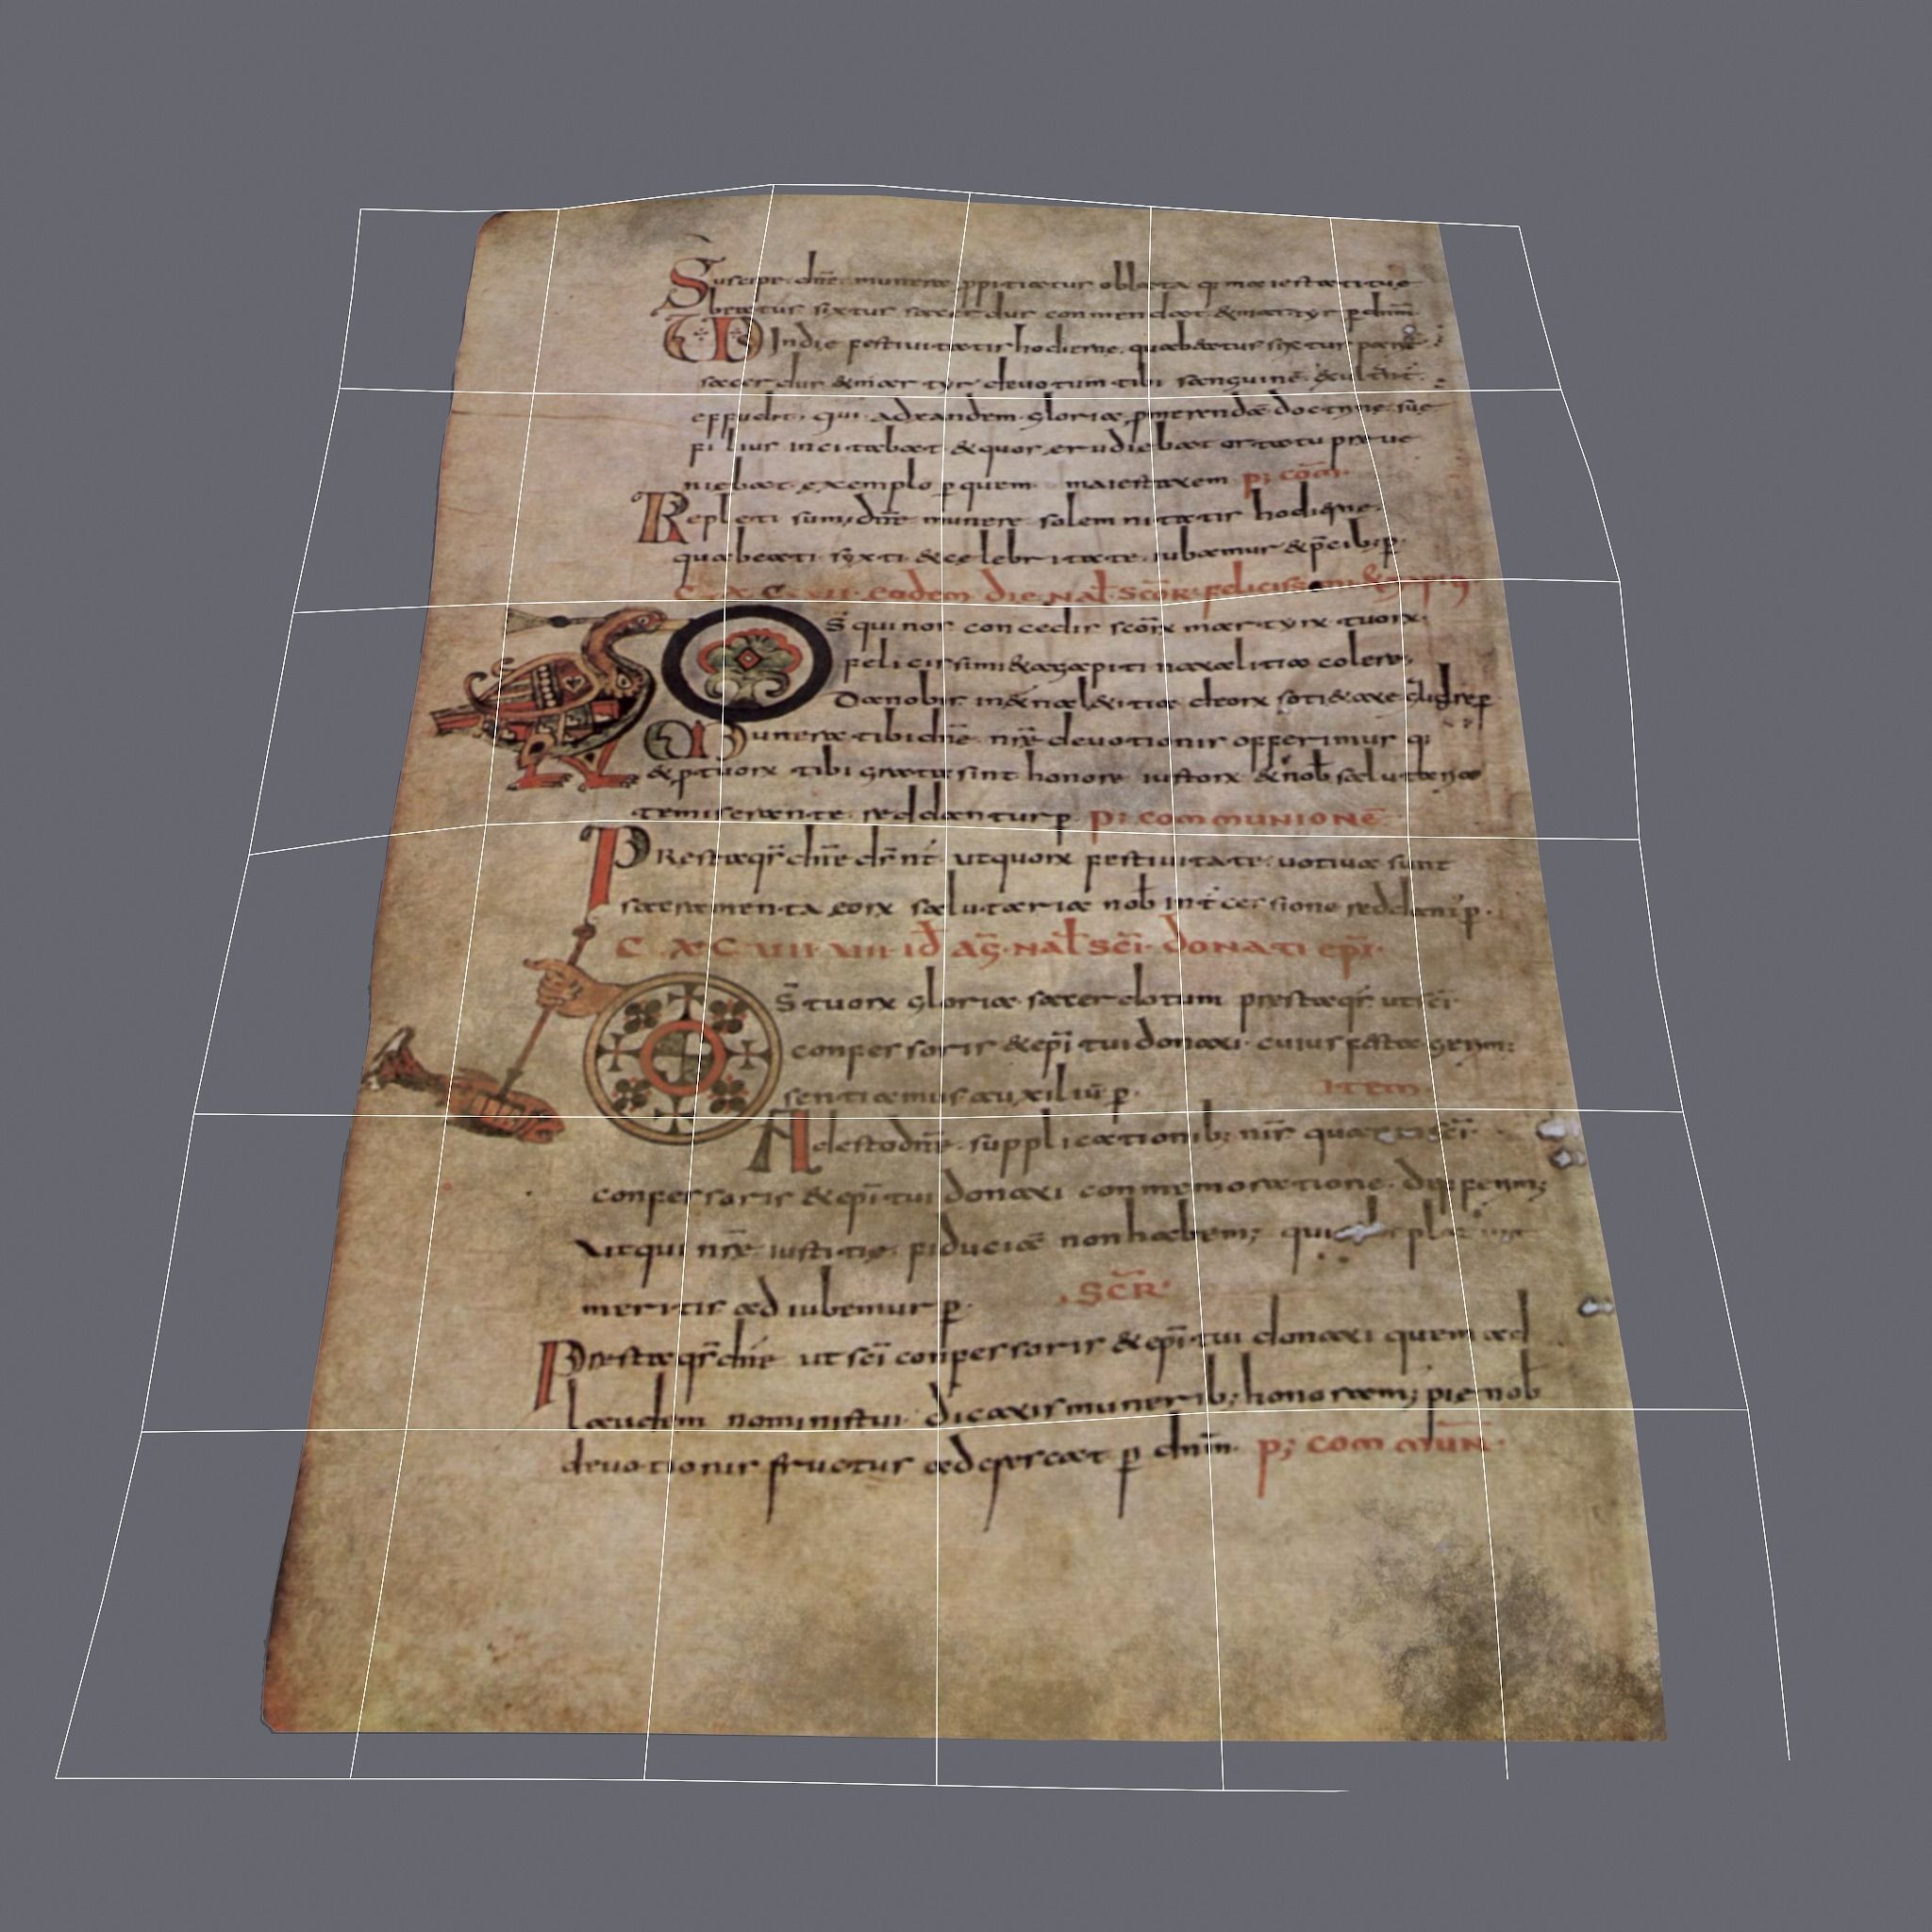 Suscipe dñe munera ppitiatur oblata q; maiestatitue
beatur sixtur sacerdur conmendat & martyr p dnm̄
UD Indie festiuitatir hodierne. quabeatur sixtur
sacerdur & martyr deuotum tibi sanguinē
effudit, qui adeandem gloriā pmerendā doctrine sue
filiur incitabat & quor erudiebat ortatu preue
niebat exemplo p quem maiestatem p; com̄
Repleti sum; dñe munere solemnitatir hodierne
quabeati syxti & celebritate iubamur & p̄cib; p
CXCVII eodem die nat̄ scōr felicissimi
O s̄ qui nor concedir scōrx martyrx tuorx
felicirsimi & agapiti natalitia colere
Danobir in &erna l&itia deorx soci&ate
Munera tibi dñe nr̄e deuotionir offerimur q;
& p tuorx tibi grata sint honore iustorx & nob̄ salutaria
te miserante reddantur p p; communionē
Prestaqr̄ dñe dr̄ nr̄ ut quorx festiuitate uotiua sunt
sacramenta eorx salutaria nob̄ int̄cersione reddant p
CXCVII VIII id ag̃ nat̄ scī donati epī
O s̄ tuorx gloria sacerdotum prestaqr̄ ut scī
conferrorir & epī tui donati cuiur festa gerim;
sentiamur auxiliū p item
Adesto dñe supplicationib; nr̄ir qua
conferrorir & epī tui donati conmemoratione deferim;
Ut qui nr̄e iustitie fiduciā non habem;
meritir adiubemur p scr̄
Prestaqr̄ dñe ut scī conferrorir & epī tui donati quem ad
laudem nominir tui dicatir munerib; honoram; pie nob̄
deuotionir fructur adcrercat p dnm̄ p; commun̄